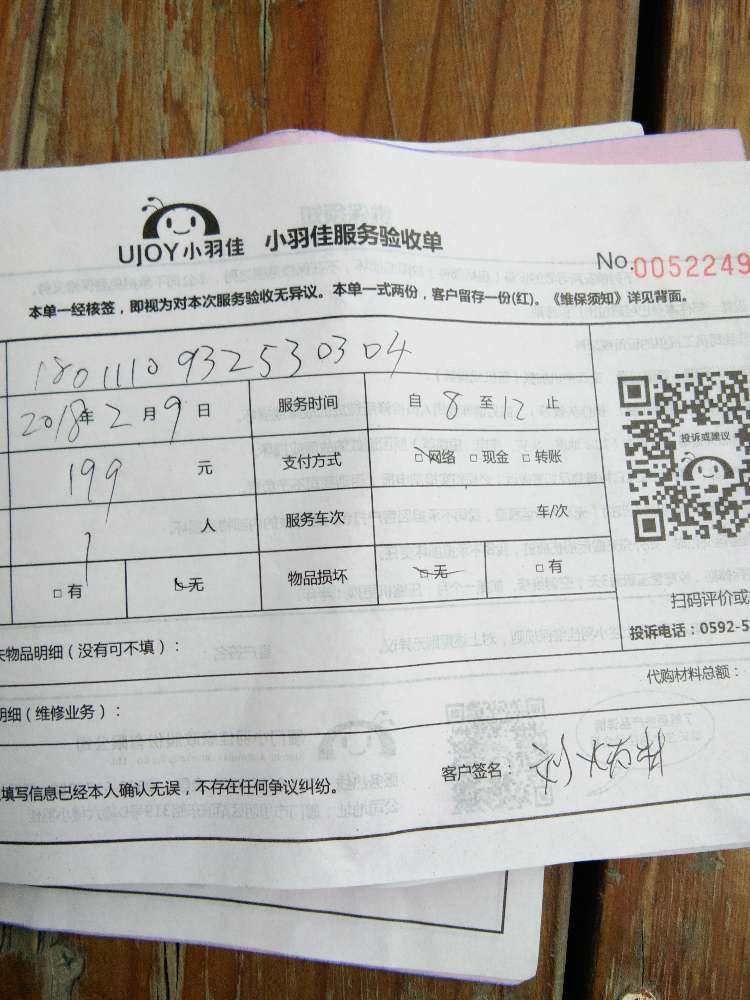 UJOY小羽佳 小羽佳服务验收单
No.0052249
本单一经核签，即视为对本次服务验收无异议。本单一式两份，客户留存一份(红)。《维保须知》详见背面。
180111093253 0304
2018年2月9日 服务时间 自8至12止
199元 支付方式 □网络 □现金 □转账
1人 服务车次 车/次
□有 □无 物品损坏 □无 □有
投诉或建议
扫码评价或
投诉电话：0592-5
物品明细（没有可不填）：
代购材料总额：
明细（维修业务）：
填写信息已经本人确认无误，不存在任何争议纠纷。
客户签名：刘